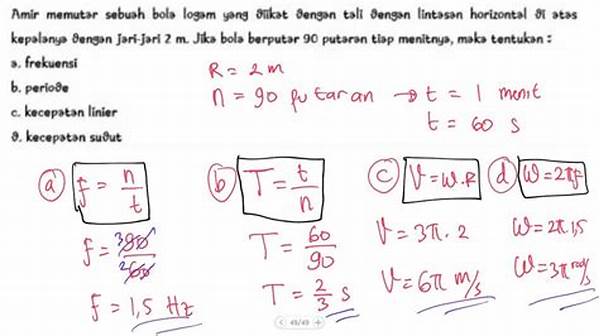 Amir memutar sebuah bola logam yang diikat dengan tali dengan lintasan horizontal di atas
kepalanya dengan jari-jari 2 m. Jika bola berputar 90 putaran tiap menitnya, maka tentukan :
a. frekuensi
b. periode
c. kecepatan linier
d. kecepatan sudut
R = 2 m
n = 90 putaran → t = 1 menit
t = 60 s
a f = n/t
f = 3 90 / 2 60
f = 1,5 Hz
b T = t/n
T = 60/90
T = 2/3 s
c V = ω.R
V = 3π . 2
V = 6π m/s
d ω = 2πf
ω = 2π.1,5
ω = 3π rad/s
49/49